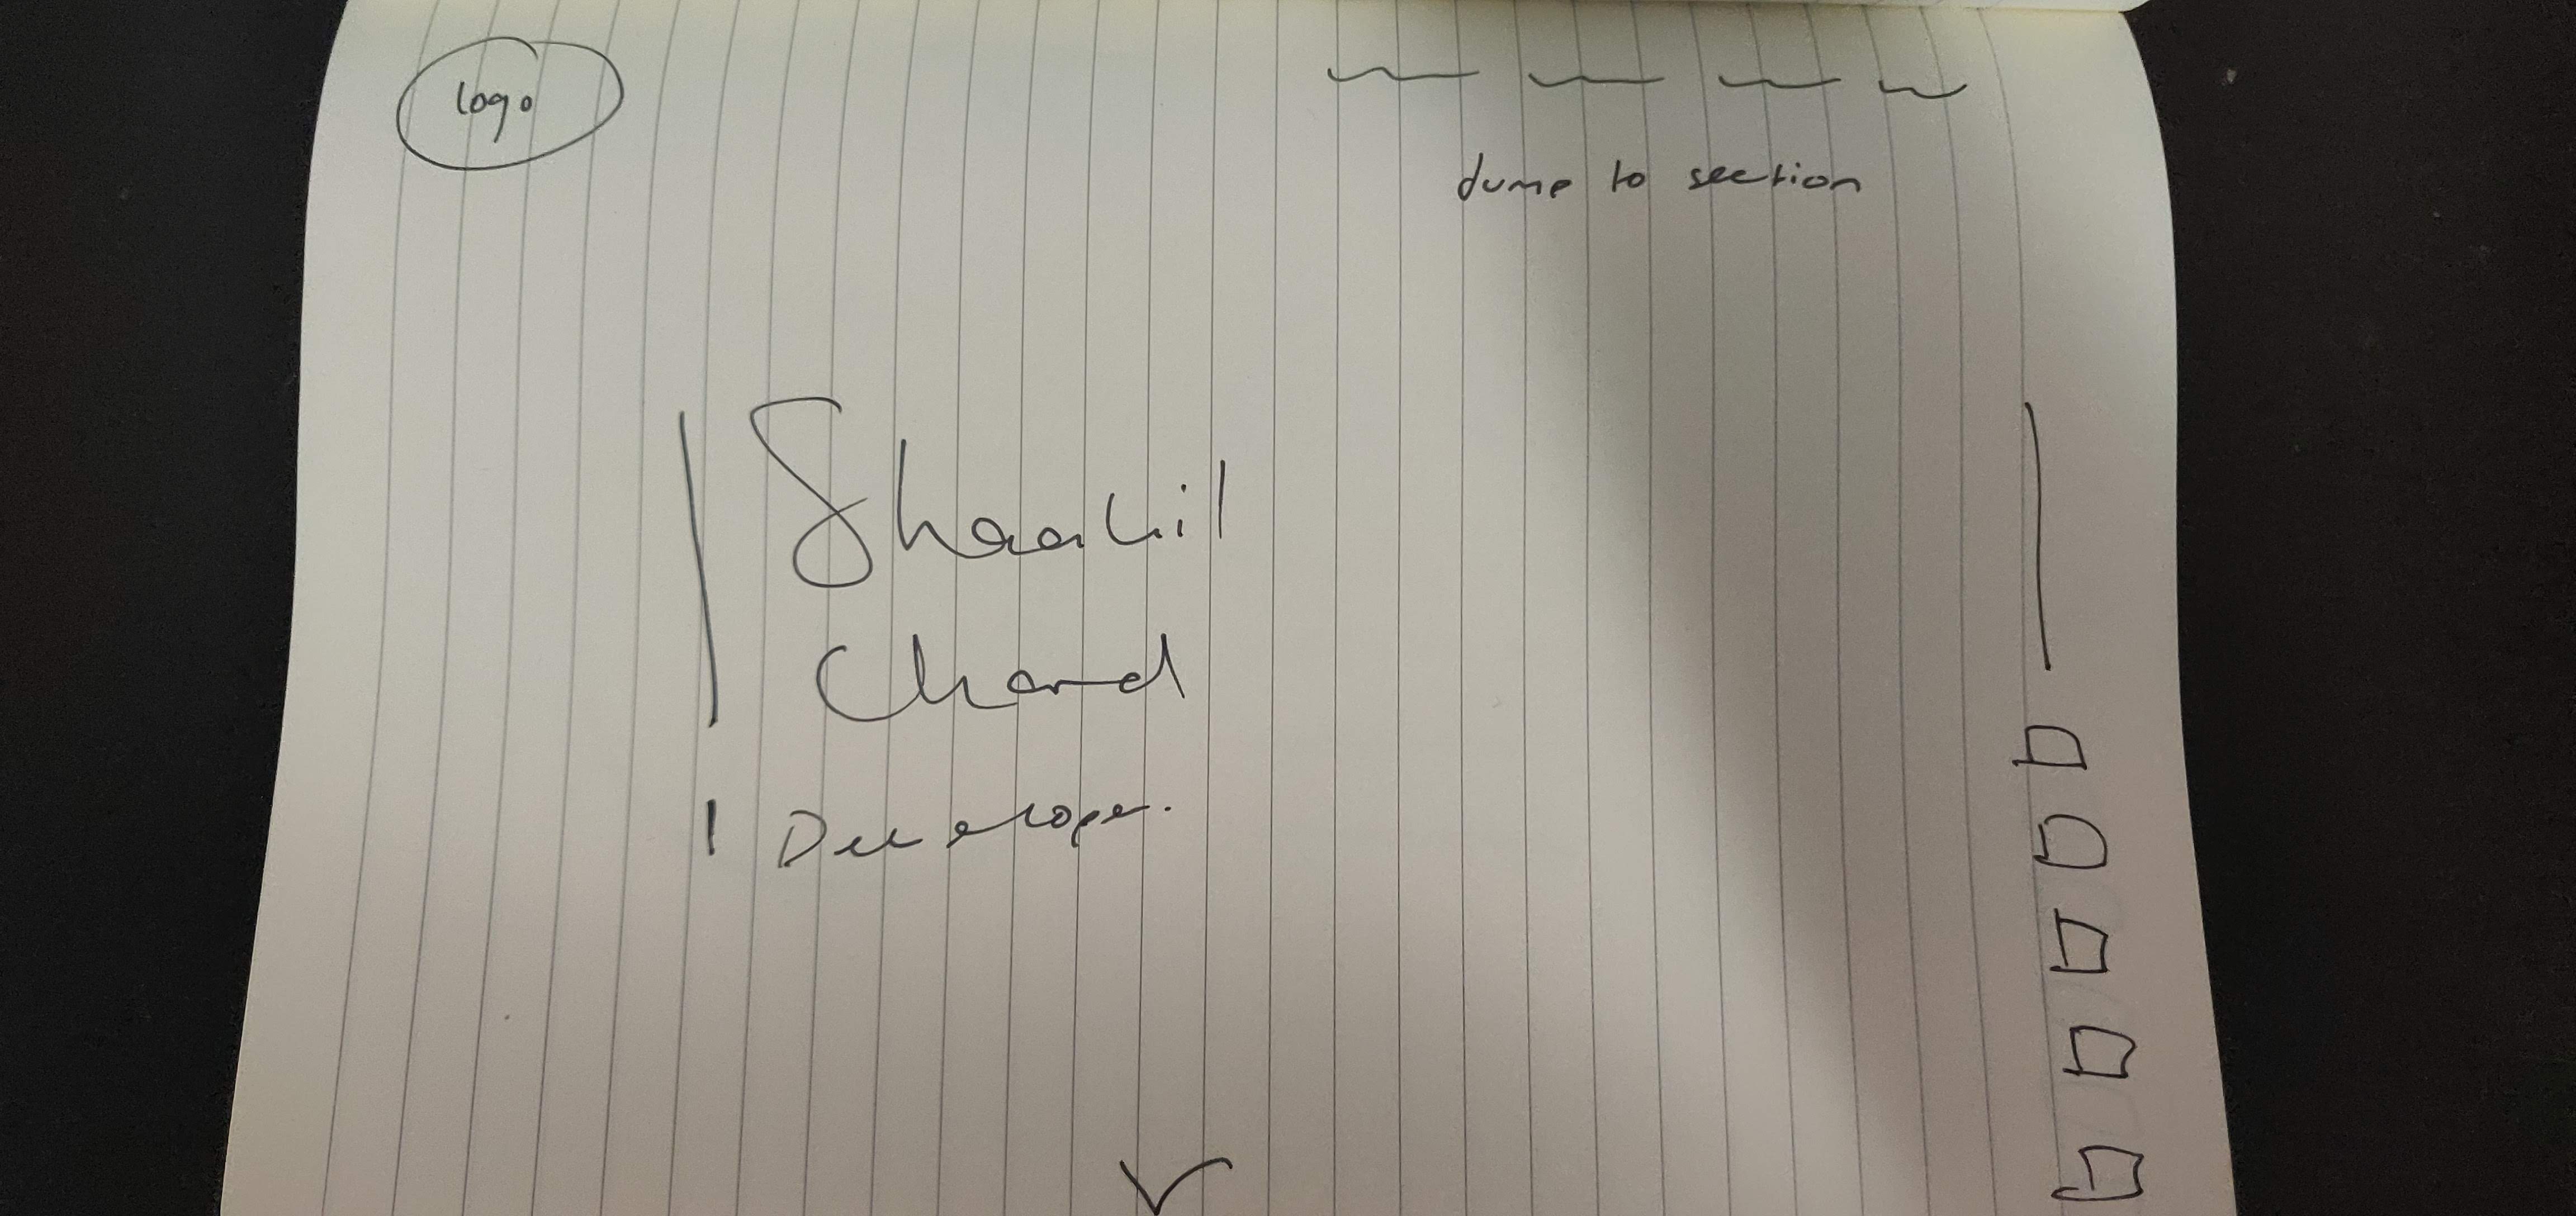 logo
dump to section
Shaahil
Chand
Developer.